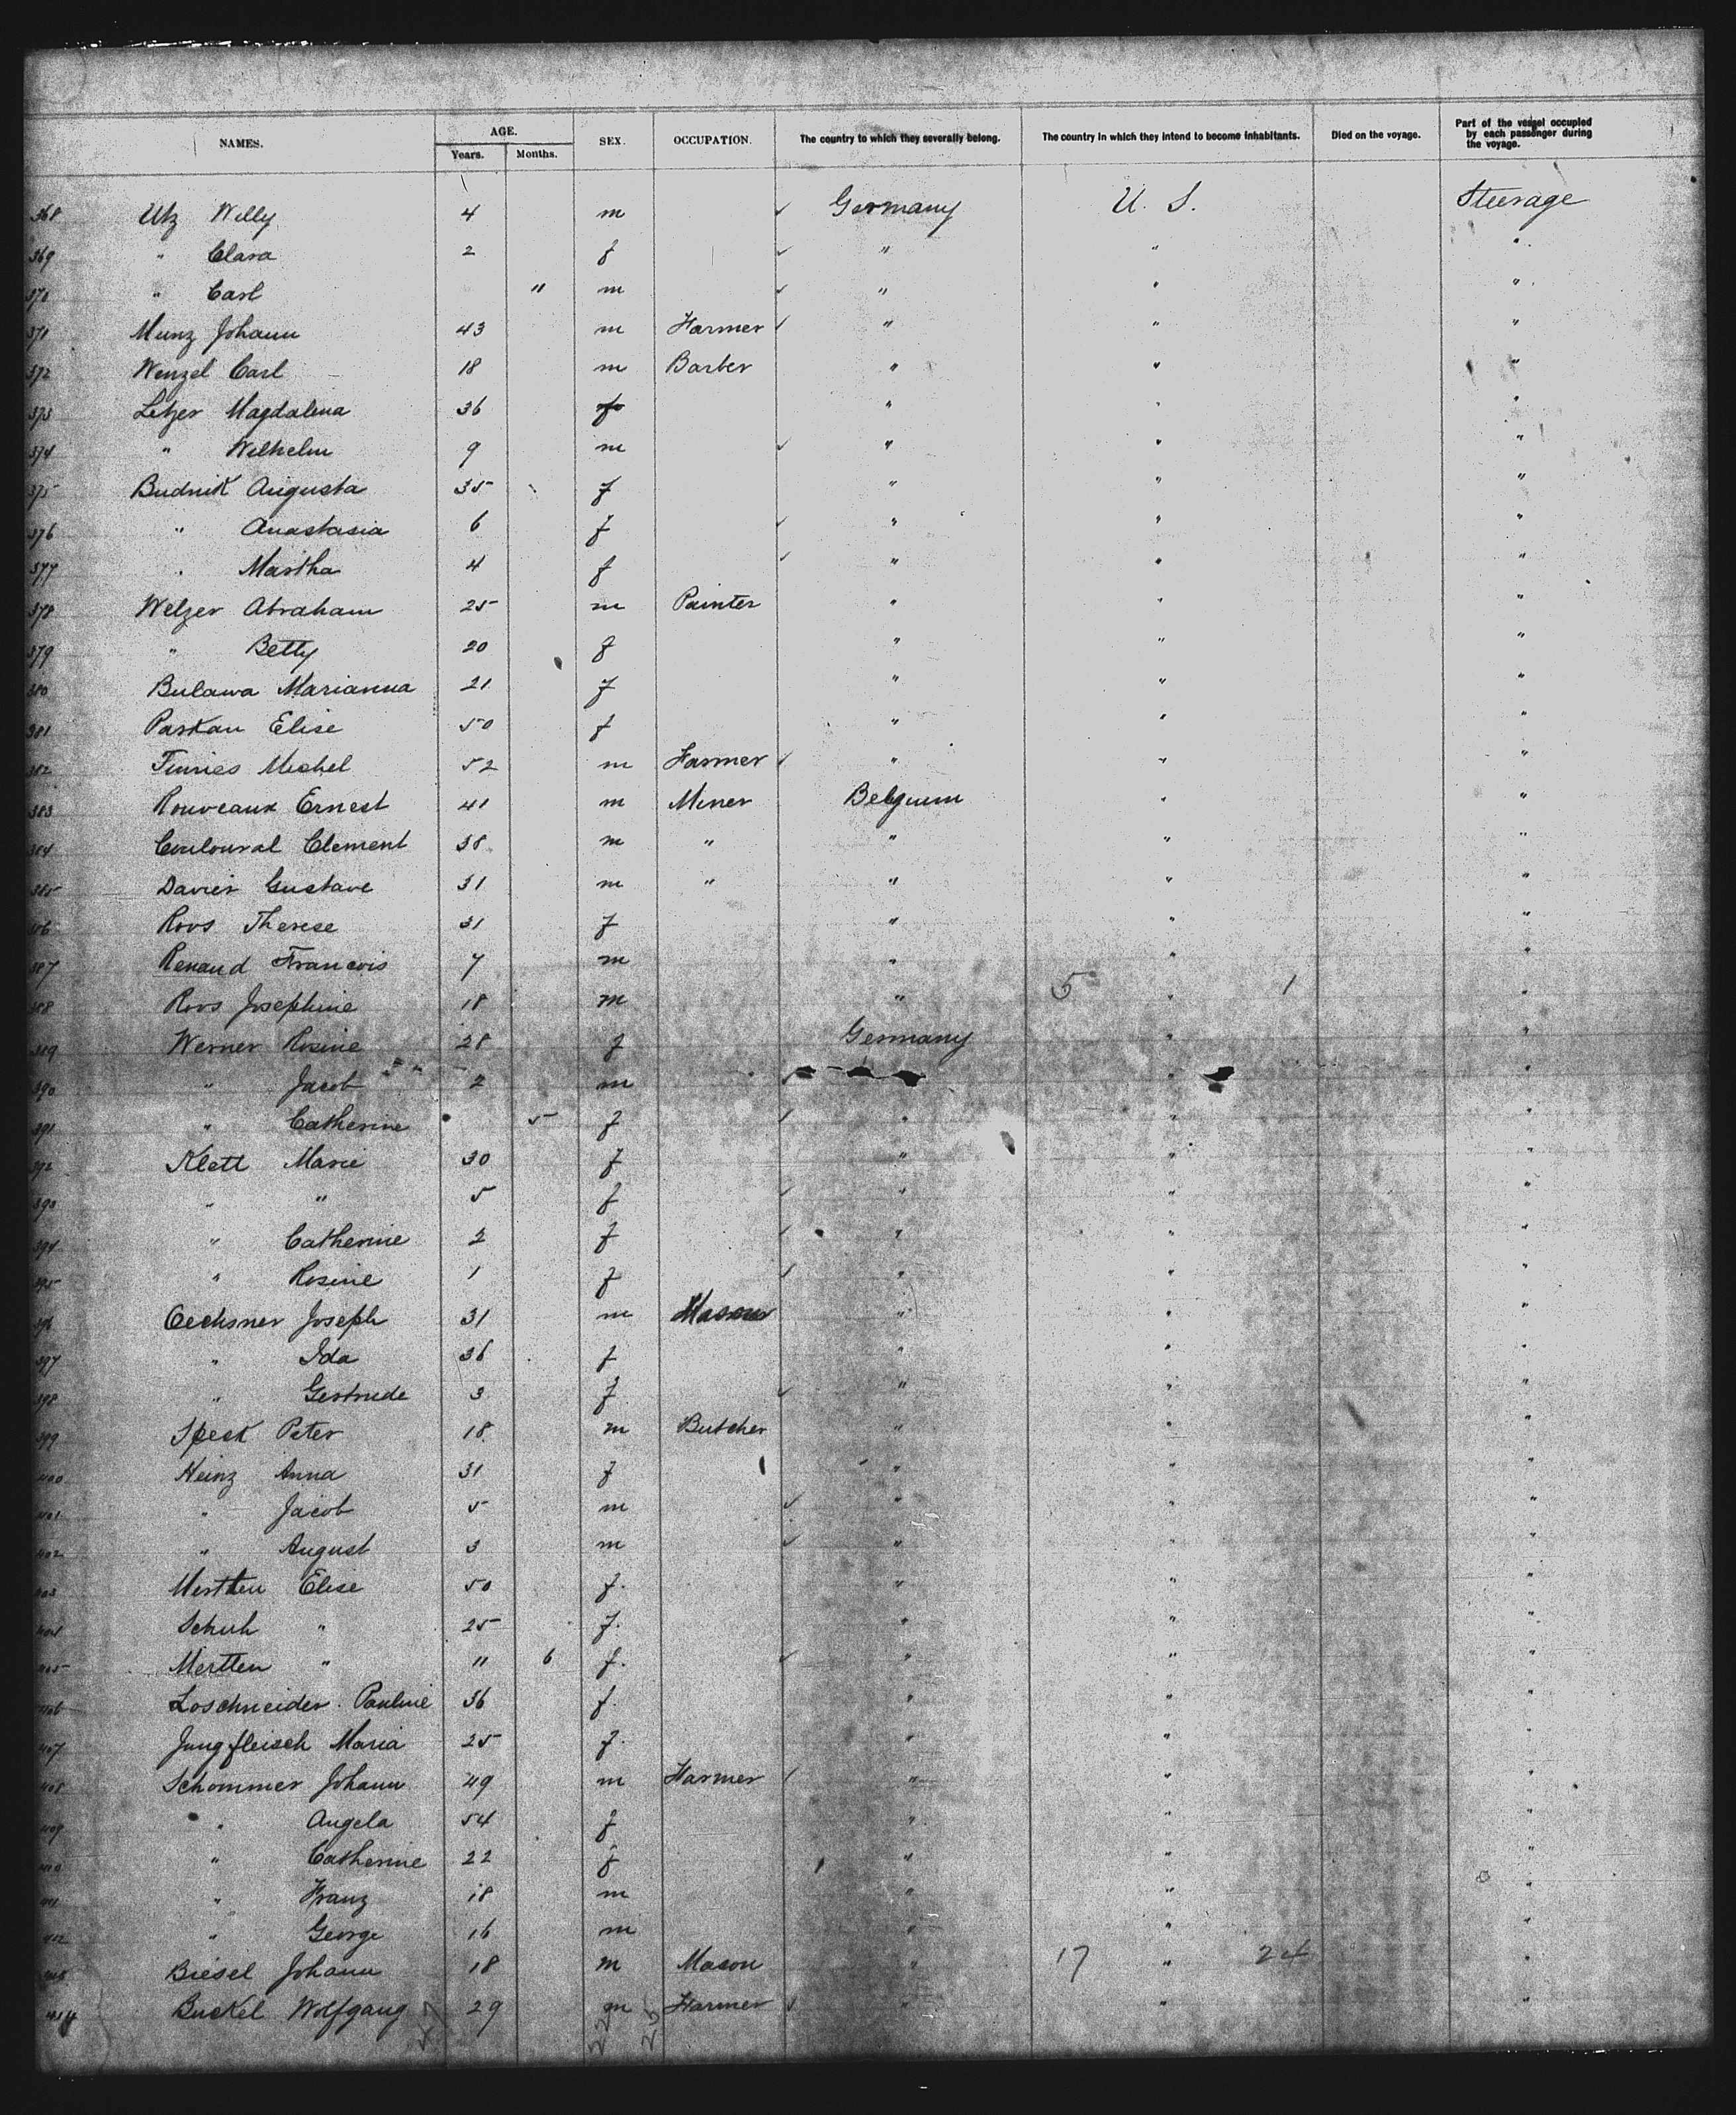 NAMES. AGE. SEX. OCCUPATION. The country to which they severally belong. The country in which they intend to become inhabitants. Died on the voyage. Part of the vessel occupied by each passenger during the voyage.
Years. Months.
368 Utz Willy 4 m Germany U. S. Steerage
369 " Clara 2 f " " "
370 " Carl " m " " "
371 Munz Johann 43 m Farmer " " "
372 Wenzel Carl 18 m Barber " " "
373 Letzer Magdalena 36 f " " "
374 " Wilhelm 9 m " " "
375 Budnik Augusta 35 f " " "
376 " Anastasia 6 f " " "
377 " Martha 4 f " " "
378 Welzer Abraham 25 m Painter " " "
379 " Betty 20 f " " "
380 Bulawa Marianna 21 f " " "
381 Paskau Elise 50 f " " "
382 Michel 52 m Farmer " " "
383 Rouveaux Ernest 41 m Miner Belgium " "
384 Couloural Clement 38 m " " " "
385 Davier Gustave 31 m " " " "
386 Roos Therese 31 f " " "
387 Renaud Francois 7 m " " "
388 Roos Josephine 18 m " 5 " 1 "
389 Werner Rosine 28 f Germany " "
390 " Jacob 2 m " "
391 " Catherine 5 f " " "
392 Klett Marie 30 f " " "
393 " " 5 f " " "
394 " Catherine 2 f " " "
395 " Rosine 1 f " " "
396 Oechsner Joseph 31 m Mason " " "
397 " Ida 36 f " " "
398 " Gertrude 3 f " " "
399 Speck Peter 18 m Butcher " " "
400 Heinz Anna 31 f " " "
401 " Jacob 5 m " " "
402 " August 3 m " " "
403 Mertten Elise 50 f. " " "
404 Schuh " 25 f. " " "
405 Mertten " " 6 f. " " "
406 Loschneider Pauline 36 f " " "
407 Jungfleisch Maria 25 f. " " "
408 Schommer Johann 49 m Farmer " " "
409 " Angela 54 f " " "
410 " Catherine 22 f " " "
411 " Franz 18 m " " "
412 " George 16 m " " "
413 Biesel Johann 18 m Mason " 17 " 24 "
414 Buckel Wolfgang 29 m Farmer " " "
47 22 25